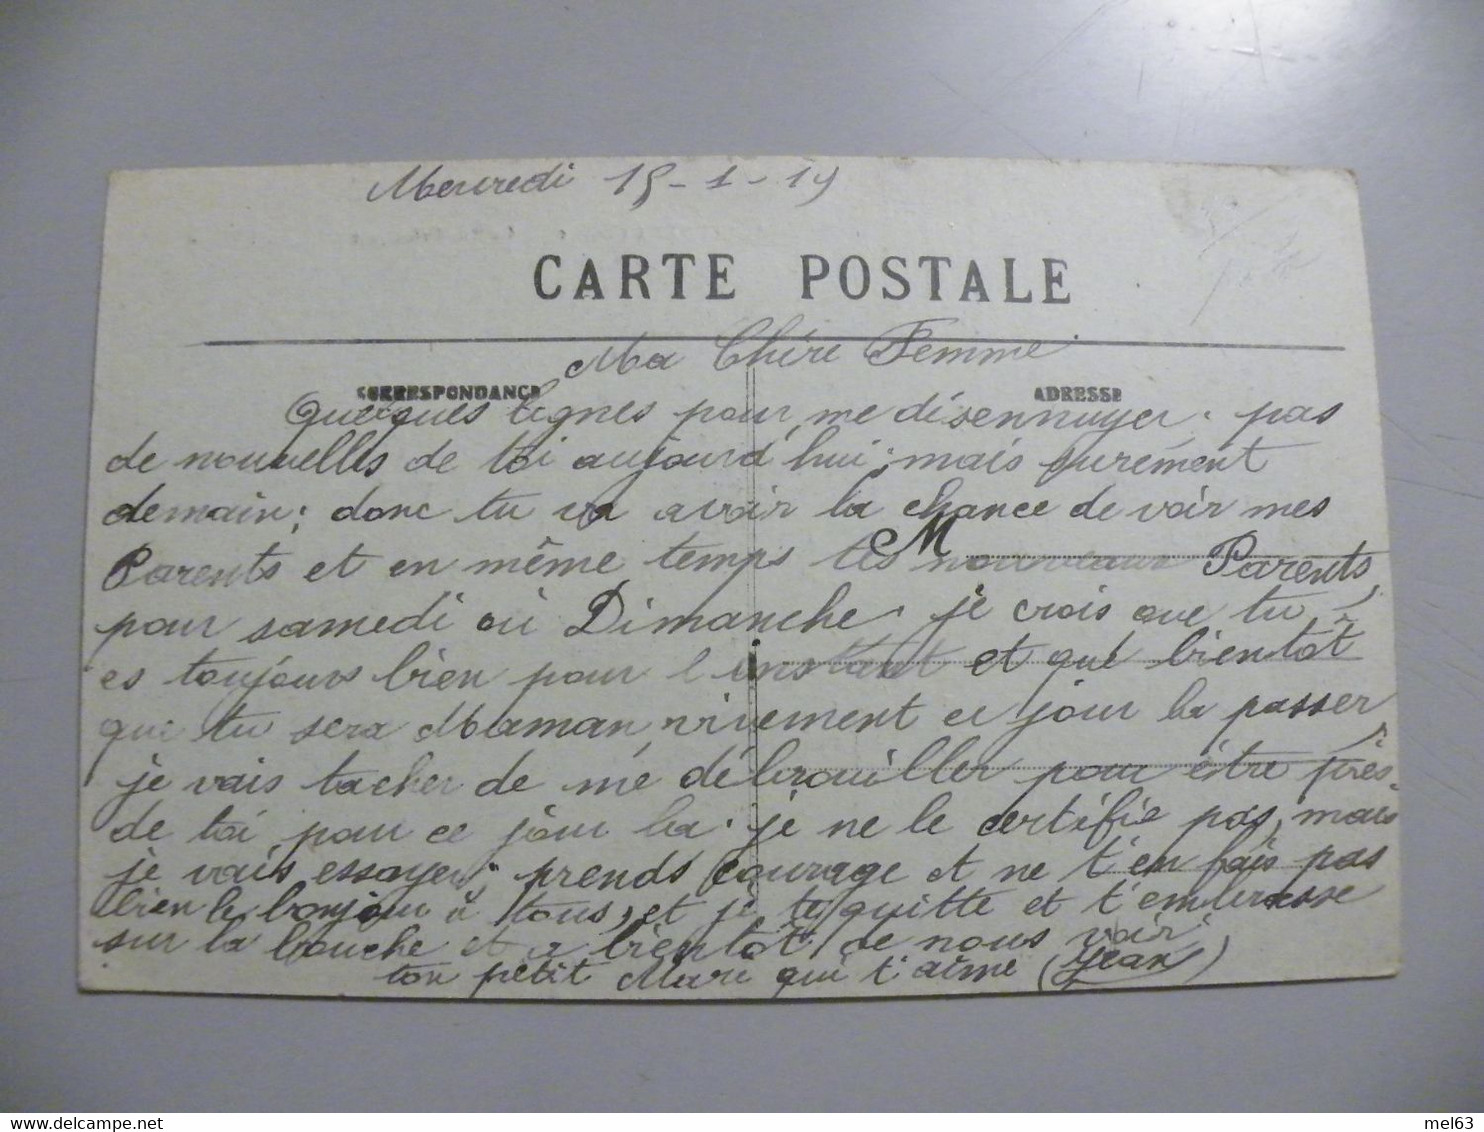 Mercredi 15-1-19
CARTE POSTALE
Ma Chère Femme
CORRESPONDANCE ADRESSE
Quelques lignes pour me désennuyer. pas
de nouvelles de toi aujourd'hui; mais surement
demain; donc tu va avoir la chance de voir mes
M
Parents et en même temps tes nouveaux Parents,
pour samedi ou Dimanche. je crois que tu
es toujours bien pour l'instant et que bientôt
que tu sera Maman, vivement ce jour la passer,
je vais tacher de me débrouiller pour être près
de toi pour ce jour la. je ne le certifie pas, mais
je vais essayer; prends courage et ne t'en fais pas
bien le bonjour à tous, et je te quitte et t'embrasse
sur la bouche et a bientôt de nous voir
ton petit Mari qui t'aime (Jean)
mel63